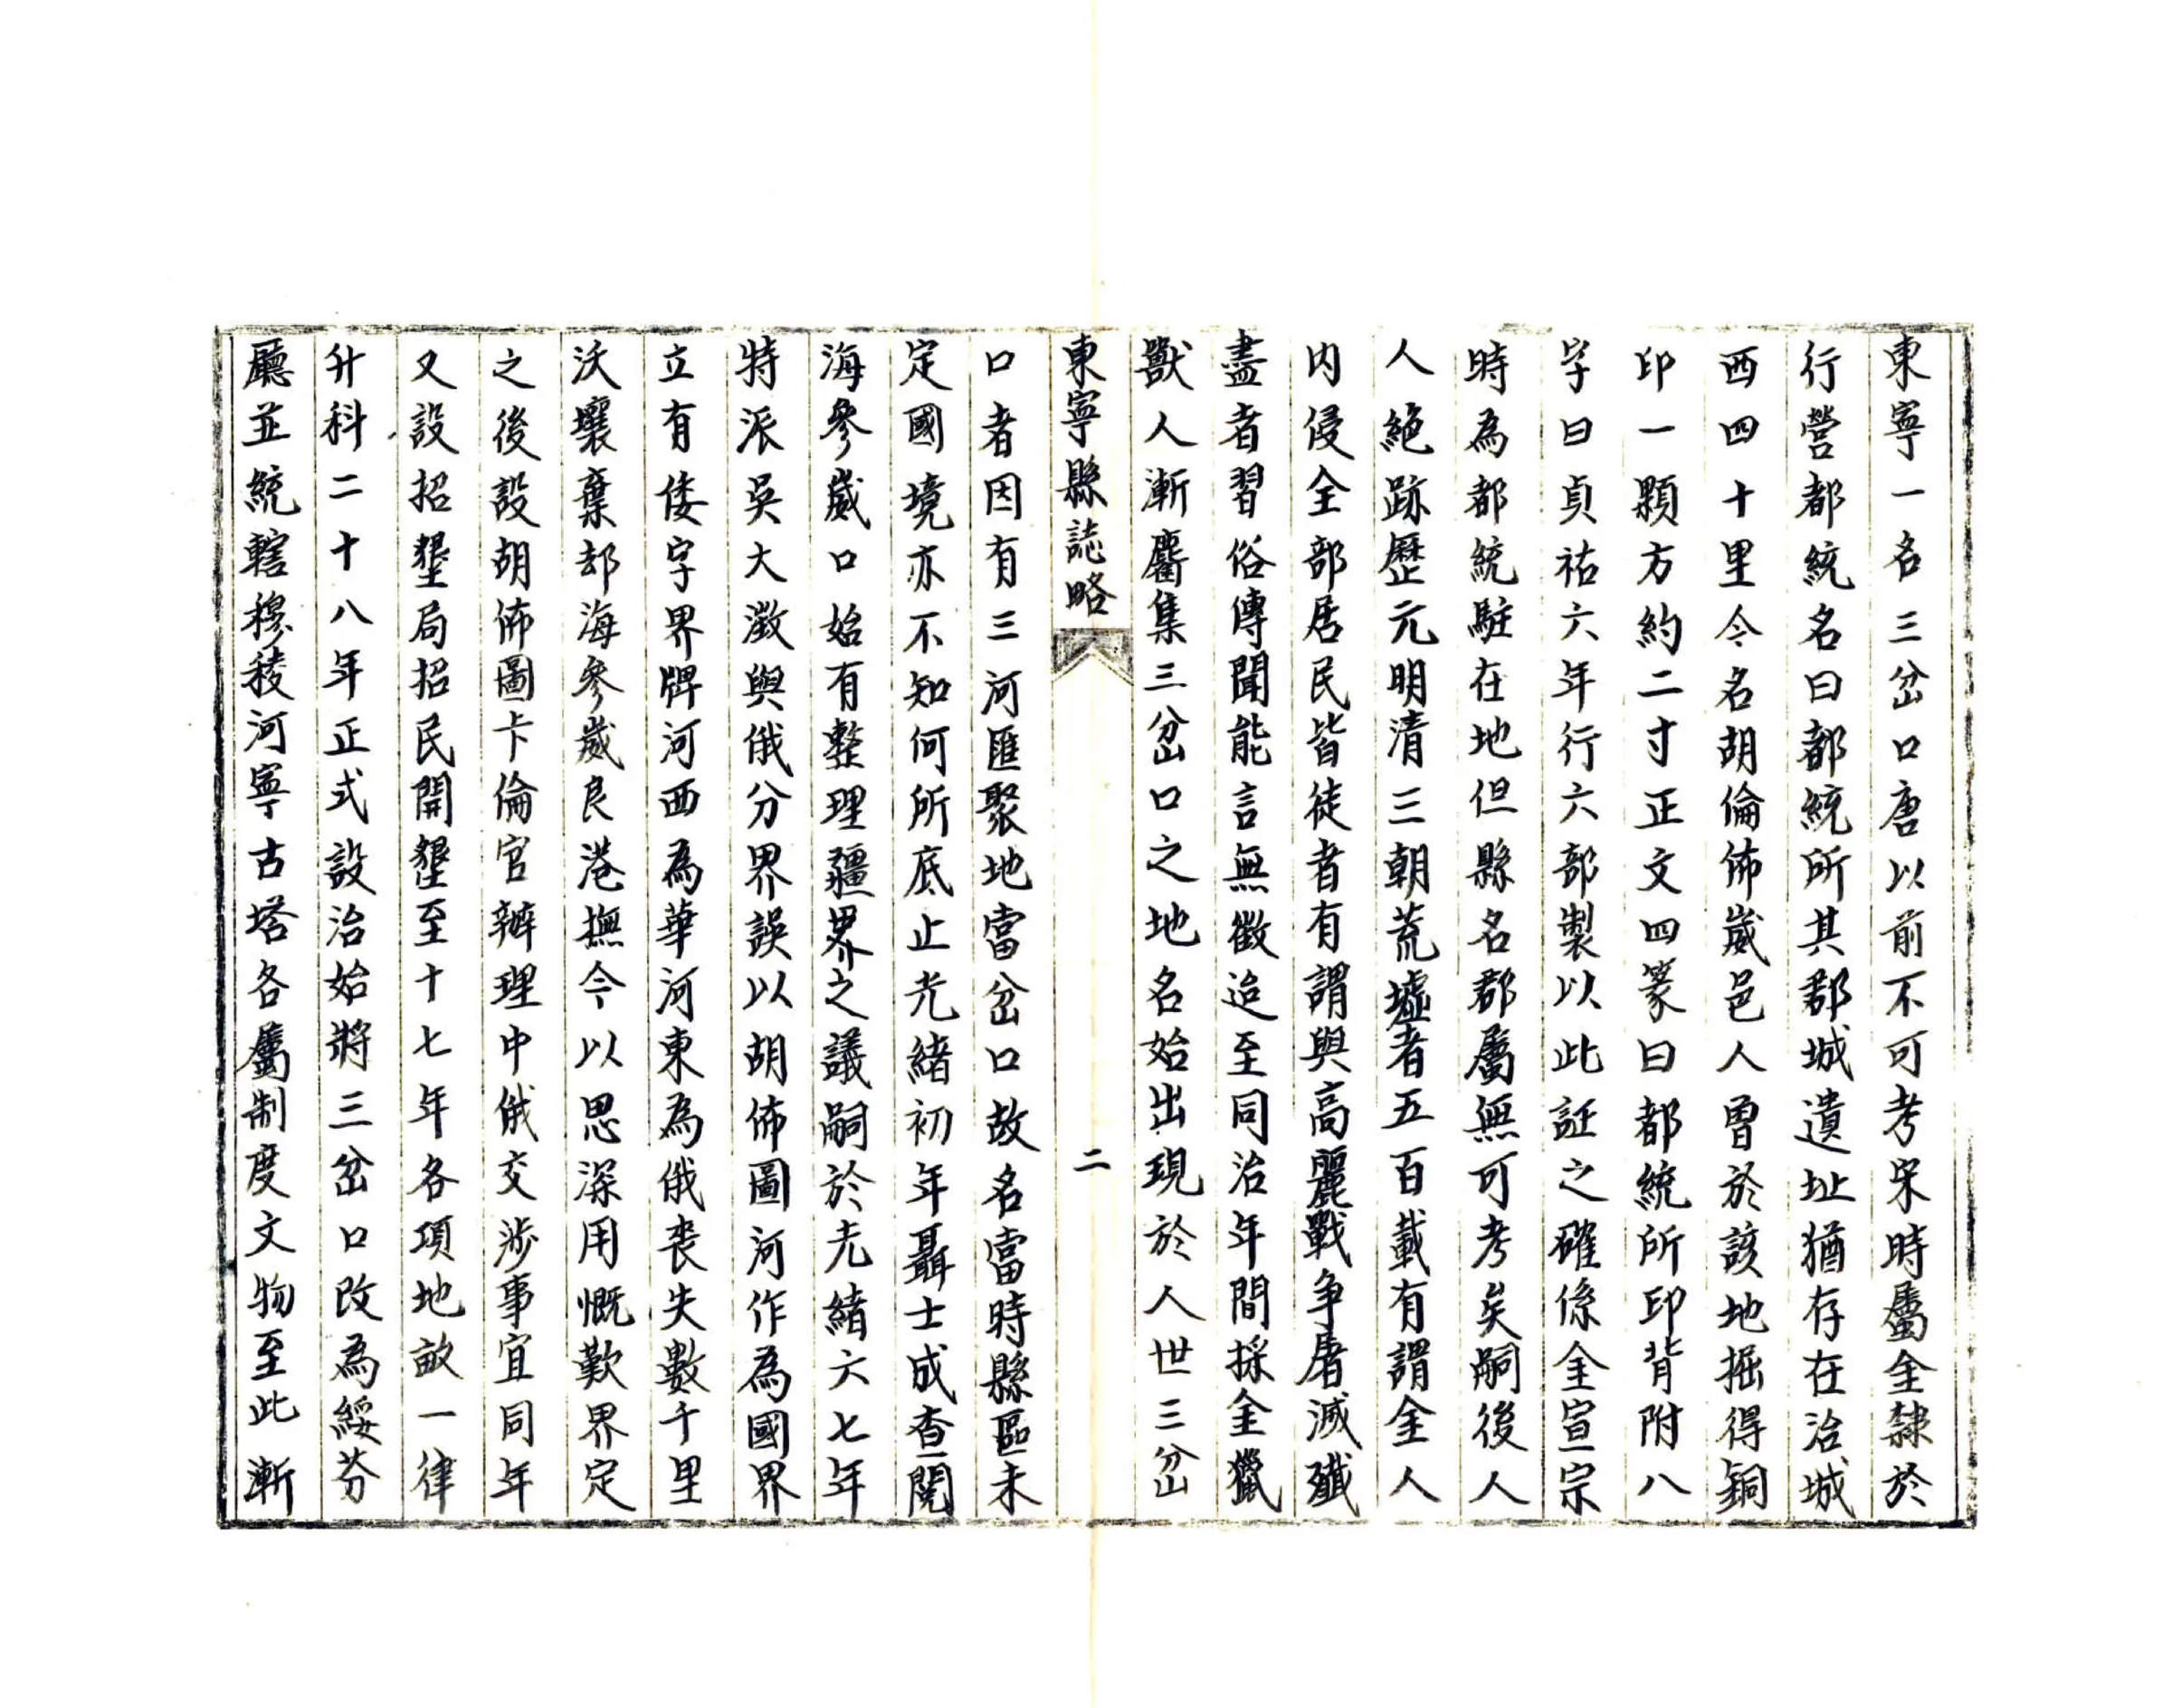 東寧一名三岔口唐以前不可考宋時屬金隸於
行營都統名曰都統所其郡城遺址猶存在治城
西四十里今名胡倫佈崴邑人曾於該地掘得銅
印一顆方約二寸正文四篆曰都統所印背附八
字曰貞祐六年行六部製以此証之確係金宣宗
時為都統駐在地但縣名郡屬無可考矣嗣後人
人絕跡歷元明清三朝荒墟者五百載有謂金人
内侵全部居民皆徒者有謂與高麗戰争屠滅殲
盡者習俗傳聞能言無徵迨至同治年間採金獵
獸人漸麕集三岔口之地名始出現於人世三岔
東寧縣誌略
二
口者因有三河匯聚地當岔口故名當時縣區未
定國境亦不知何所底止光緒初年聶士成查閱
海參崴口始有整理疆界之議嗣於光緒六七年
特派吳大澂與俄分界誤以胡佈圖河作為國界
立有倭字界牌河西為華河東為俄喪失數千里
沃壤棄却海參崴良港撫今以思深用慨歎界定
之後設胡佈圖卡倫官辦理中俄交涉事宜同年
又設招墾局招民開墾至十七年各項地畝一律
升科二十八年正式設治始將三岔口改為綏芬
廳並統轄穆稜河寧古塔各屬制度文物至此漸